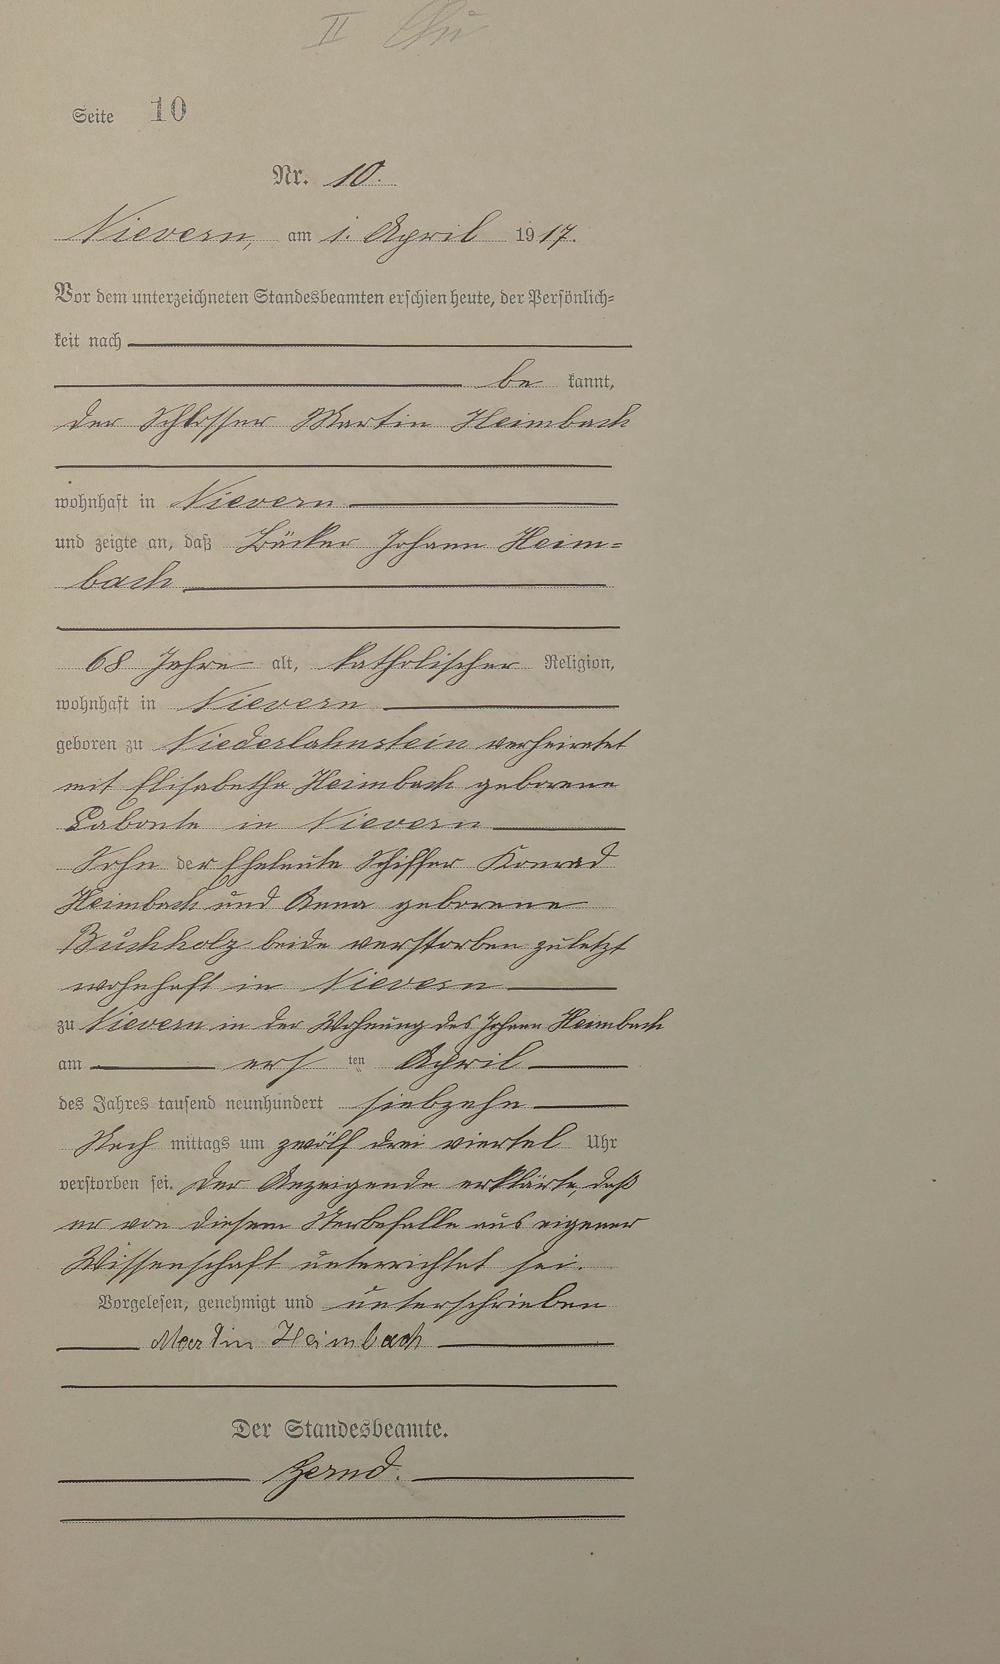 II
Seite 10
Nr. 10.
Nievern, am 1. April 1917.
Vor dem unterzeichneten Standesbeamten erschien heute, der Persönlich=
keit nach
be kannt,
der Schlosser Martin Heimbach
wohnhaft in Nievern
und zeigte an, daß Bäcker Johann Heim=
bach
68 Jahre alt, katholischer Religion,
wohnhaft in Nievern
geboren zu Niederlahnstein verheiratet
mit Elisabetha Heimbach geborene
Labonte in Nievern
Sohn der Eheleute Schiffer Konrad
Heimbach und Anna geborene
Buchholz beide verstorben zuletzt
wohnhaft in Nievern
zu Nievern in der Wohnung des Johann Heimbach
am ers ten April
des Jahres tausend neunhundert siebzehn
Nach mittags um zwölf drei viertel Uhr
verstorben sei. Der Anzeigende erklärte, daß
er von diesem Sterbefalle aus eigener
Wissenschaft unterrichtet sei.
Vorgelesen, genehmigt und unterschrieben
Martin Heimbach
Der Standesbeamte.